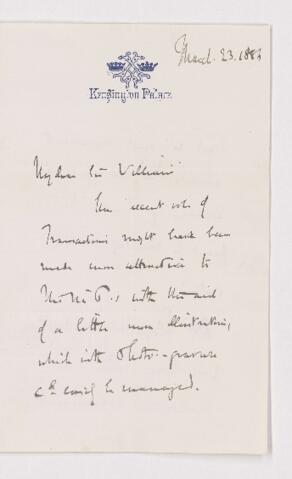 March. 23. 1883
Kensington Palace
My dear Sir William
The recent vol. of
Transactions might have been
made more attractive to
the M.P.s with the aid
of a little more illustration,
which with Photo-gravure
cd. easily be managed.